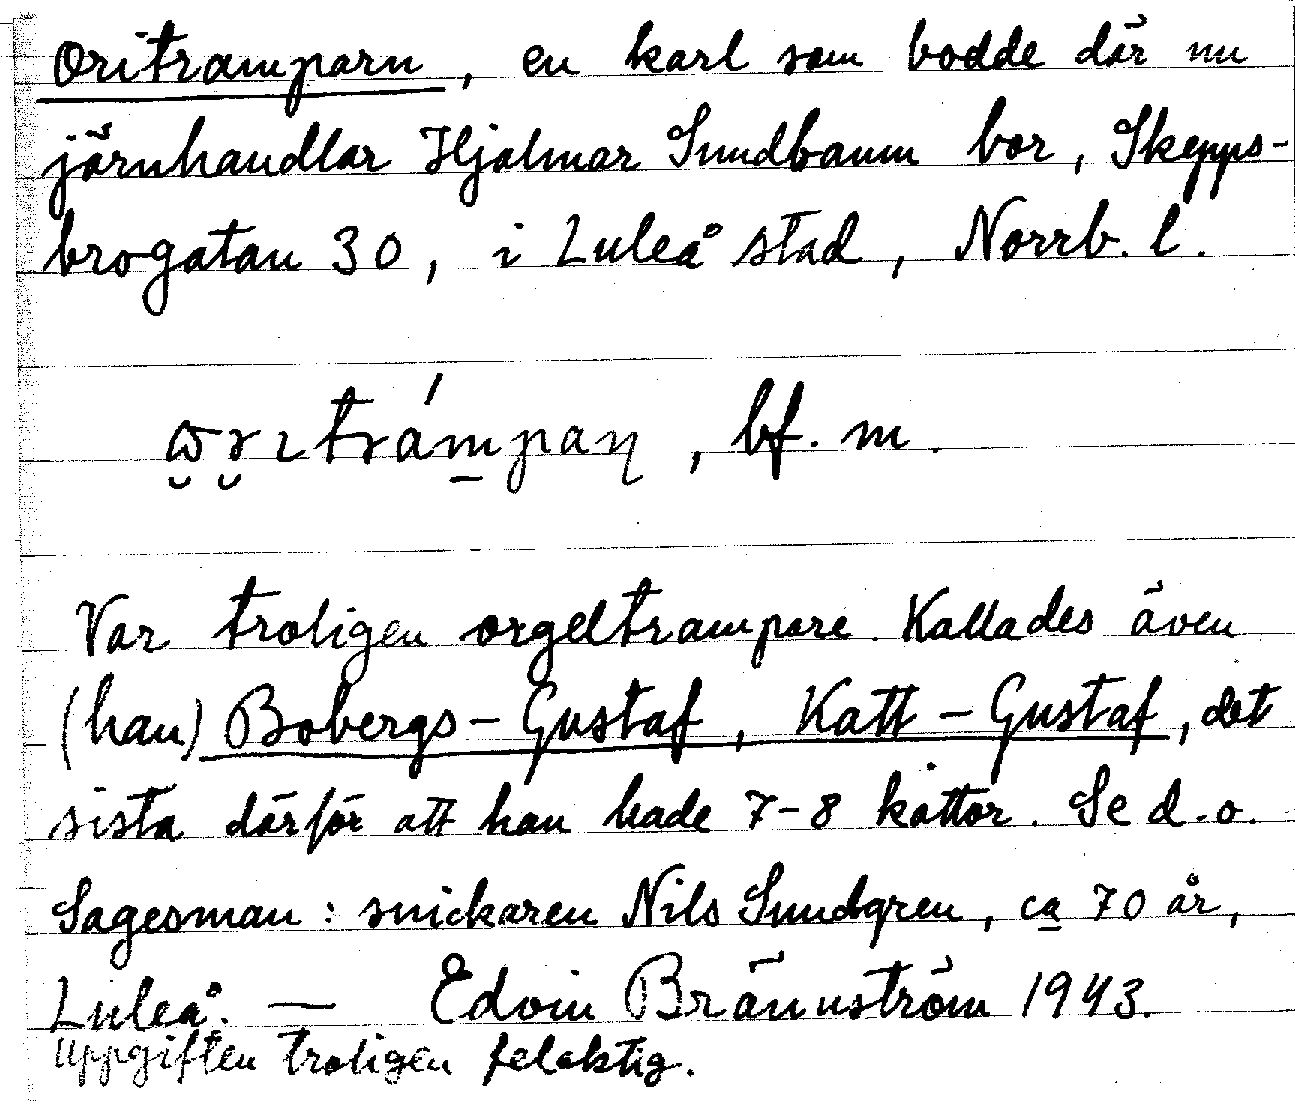 Oritramparn, en karl som bodde där nu
järnhandlar Hjalmar Sundbaum bor, Skepps-
brogatan 30, i Luleå stad, Norrb. l.
, bf. m.
Var troligen orgeltrampare. Kallades även
(han) Bobergs-Gustaf, Katt-Gustaf, det
sista därför att han hade 7-8 kattor. Se d. o.
Sagesman: snickaren Nils Sundgren, ca 70 år,
Luleå. — Edvin Brännström 1943.
Uppgiften troligen felaktig.